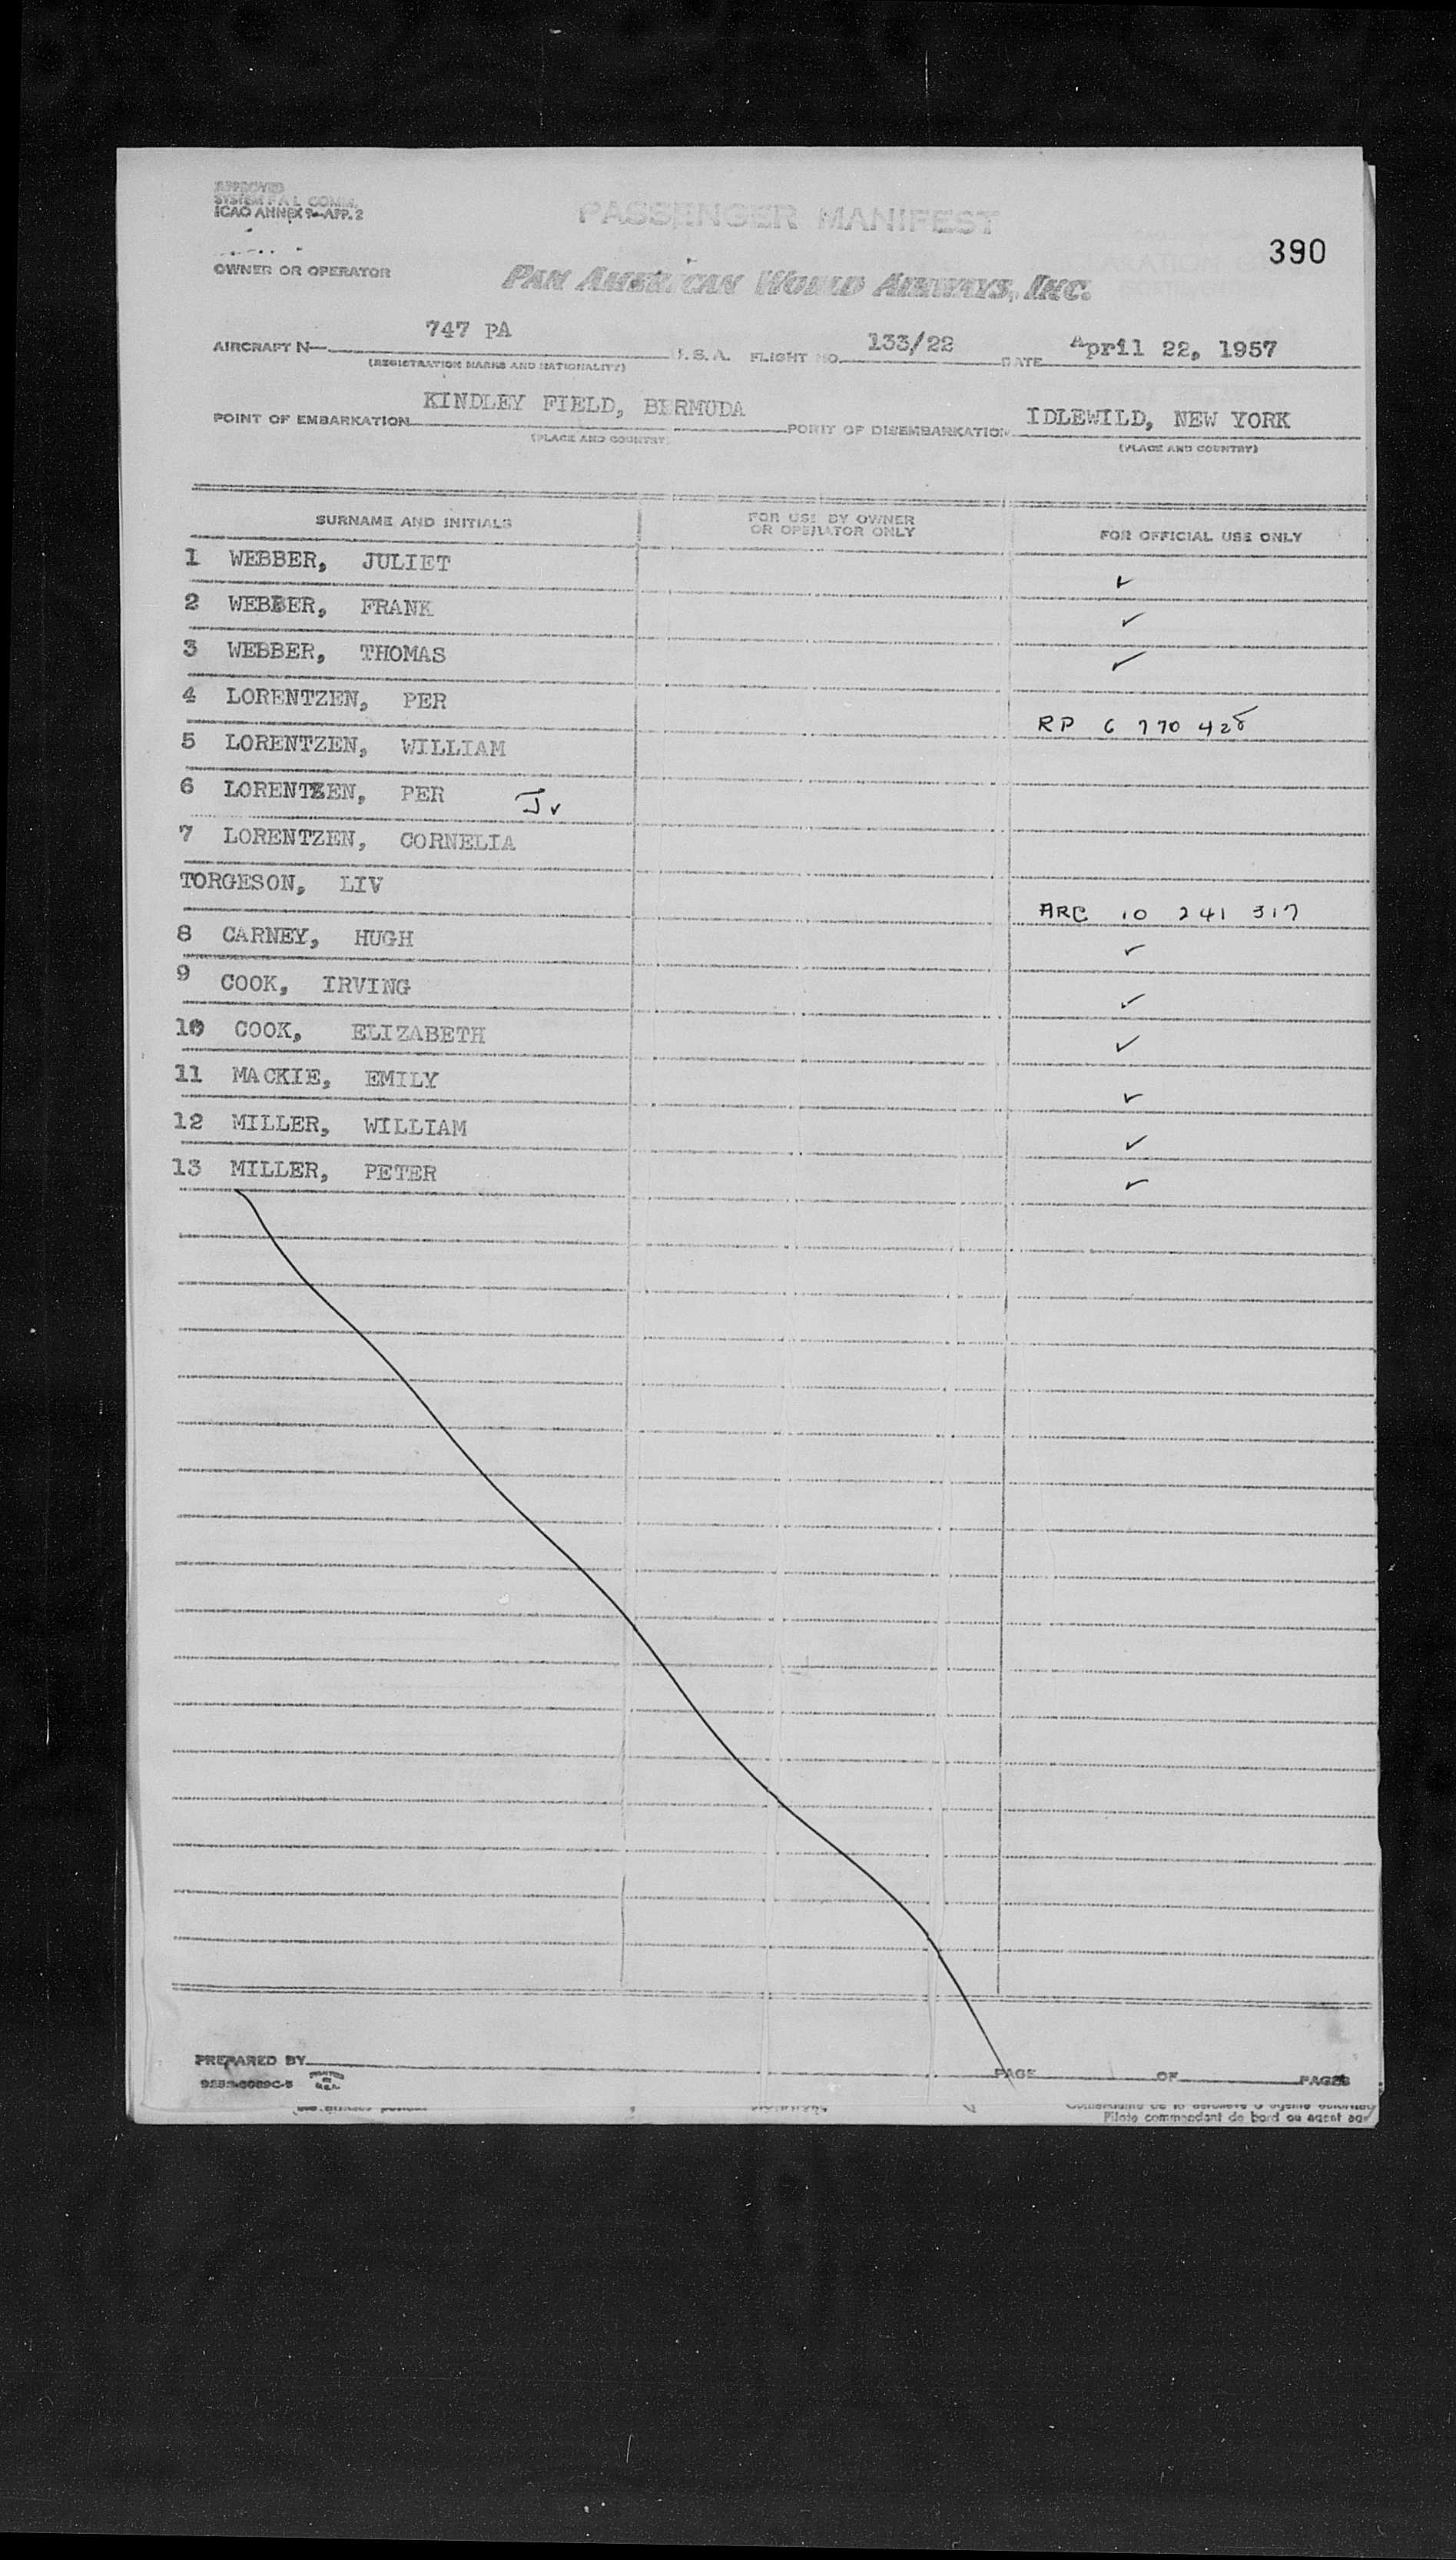 APPROVED
SYSTEM F A L COMM.
ICAO ANNEX 9—APP. 2
PASSENGER MANIFEST
390
OWNER OR OPERATOR
PAN AMERICAN WORLD AIRWAYS, INC.
AIRCRAFT N— 747 PA U. S. A. FLIGHT NO. 133/22 DATE April 22, 1957
(REGISTRATION MARKS AND NATIONALITY)
POINT OF EMBARKATION KINDLEY FIELD, BERMUDA POINT OF DISEMBARKATION IDLEWILD, NEW YORK
(PLACE AND COUNTRY) (PLACE AND COUNTRY)
SURNAME AND INITIALS FOR USE BY OWNER OR OPERATOR ONLY FOR OFFICIAL USE ONLY
1 WEBBER, JULIET ✓
2 WEBBER, FRANK ✓
3 WEBBER, THOMAS ✓
4 LORENTZEN, PER RP 6 770 428
5 LORENTZEN, WILLIAM
6 LORENTZEN, PER Jr
7 LORENTZEN, CORNELIA
TORGESON, LIV ARC 10 241 317
8 CARNEY, HUGH ✓
9 COOK, IRVING ✓
10 COOK, ELIZABETH ✓
11 MACKIE, EMILY ✓
12 MILLER, WILLIAM ✓
13 MILLER, PETER ✓
PREPARED BY PAGE OF PAGES
PRINTED IN U.S.A.
Pilote commandant de bord ou agent